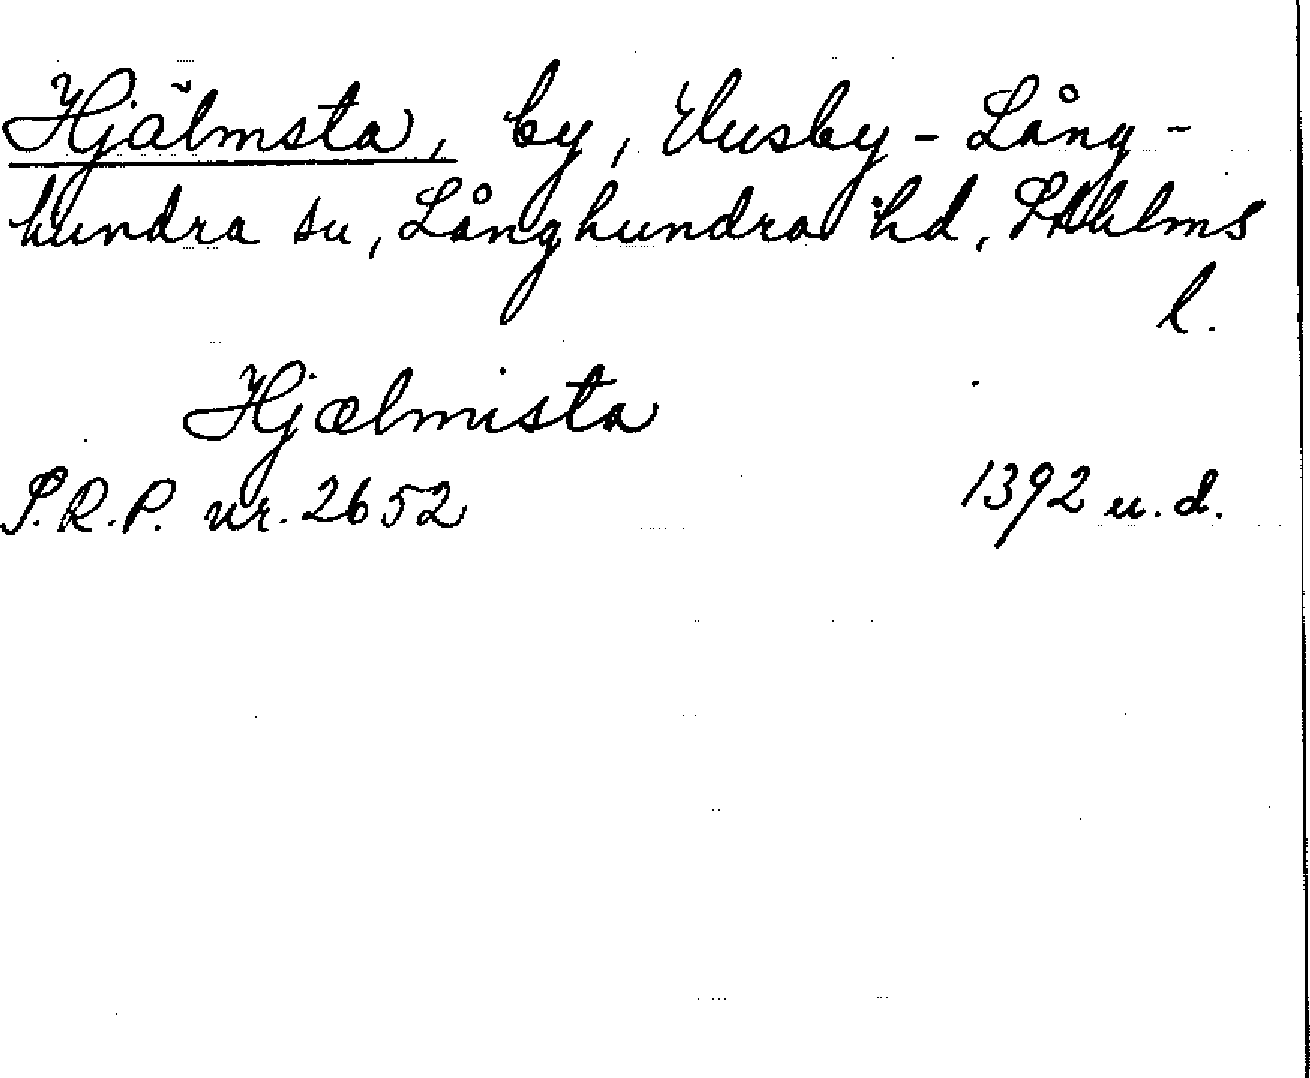 Hjälmsta, by, Husby-Lång-
hundra sn, Långhundra hd, Sthlms
l.
Hjælmista
S.R.P. nr. 2652 1392 u.d.